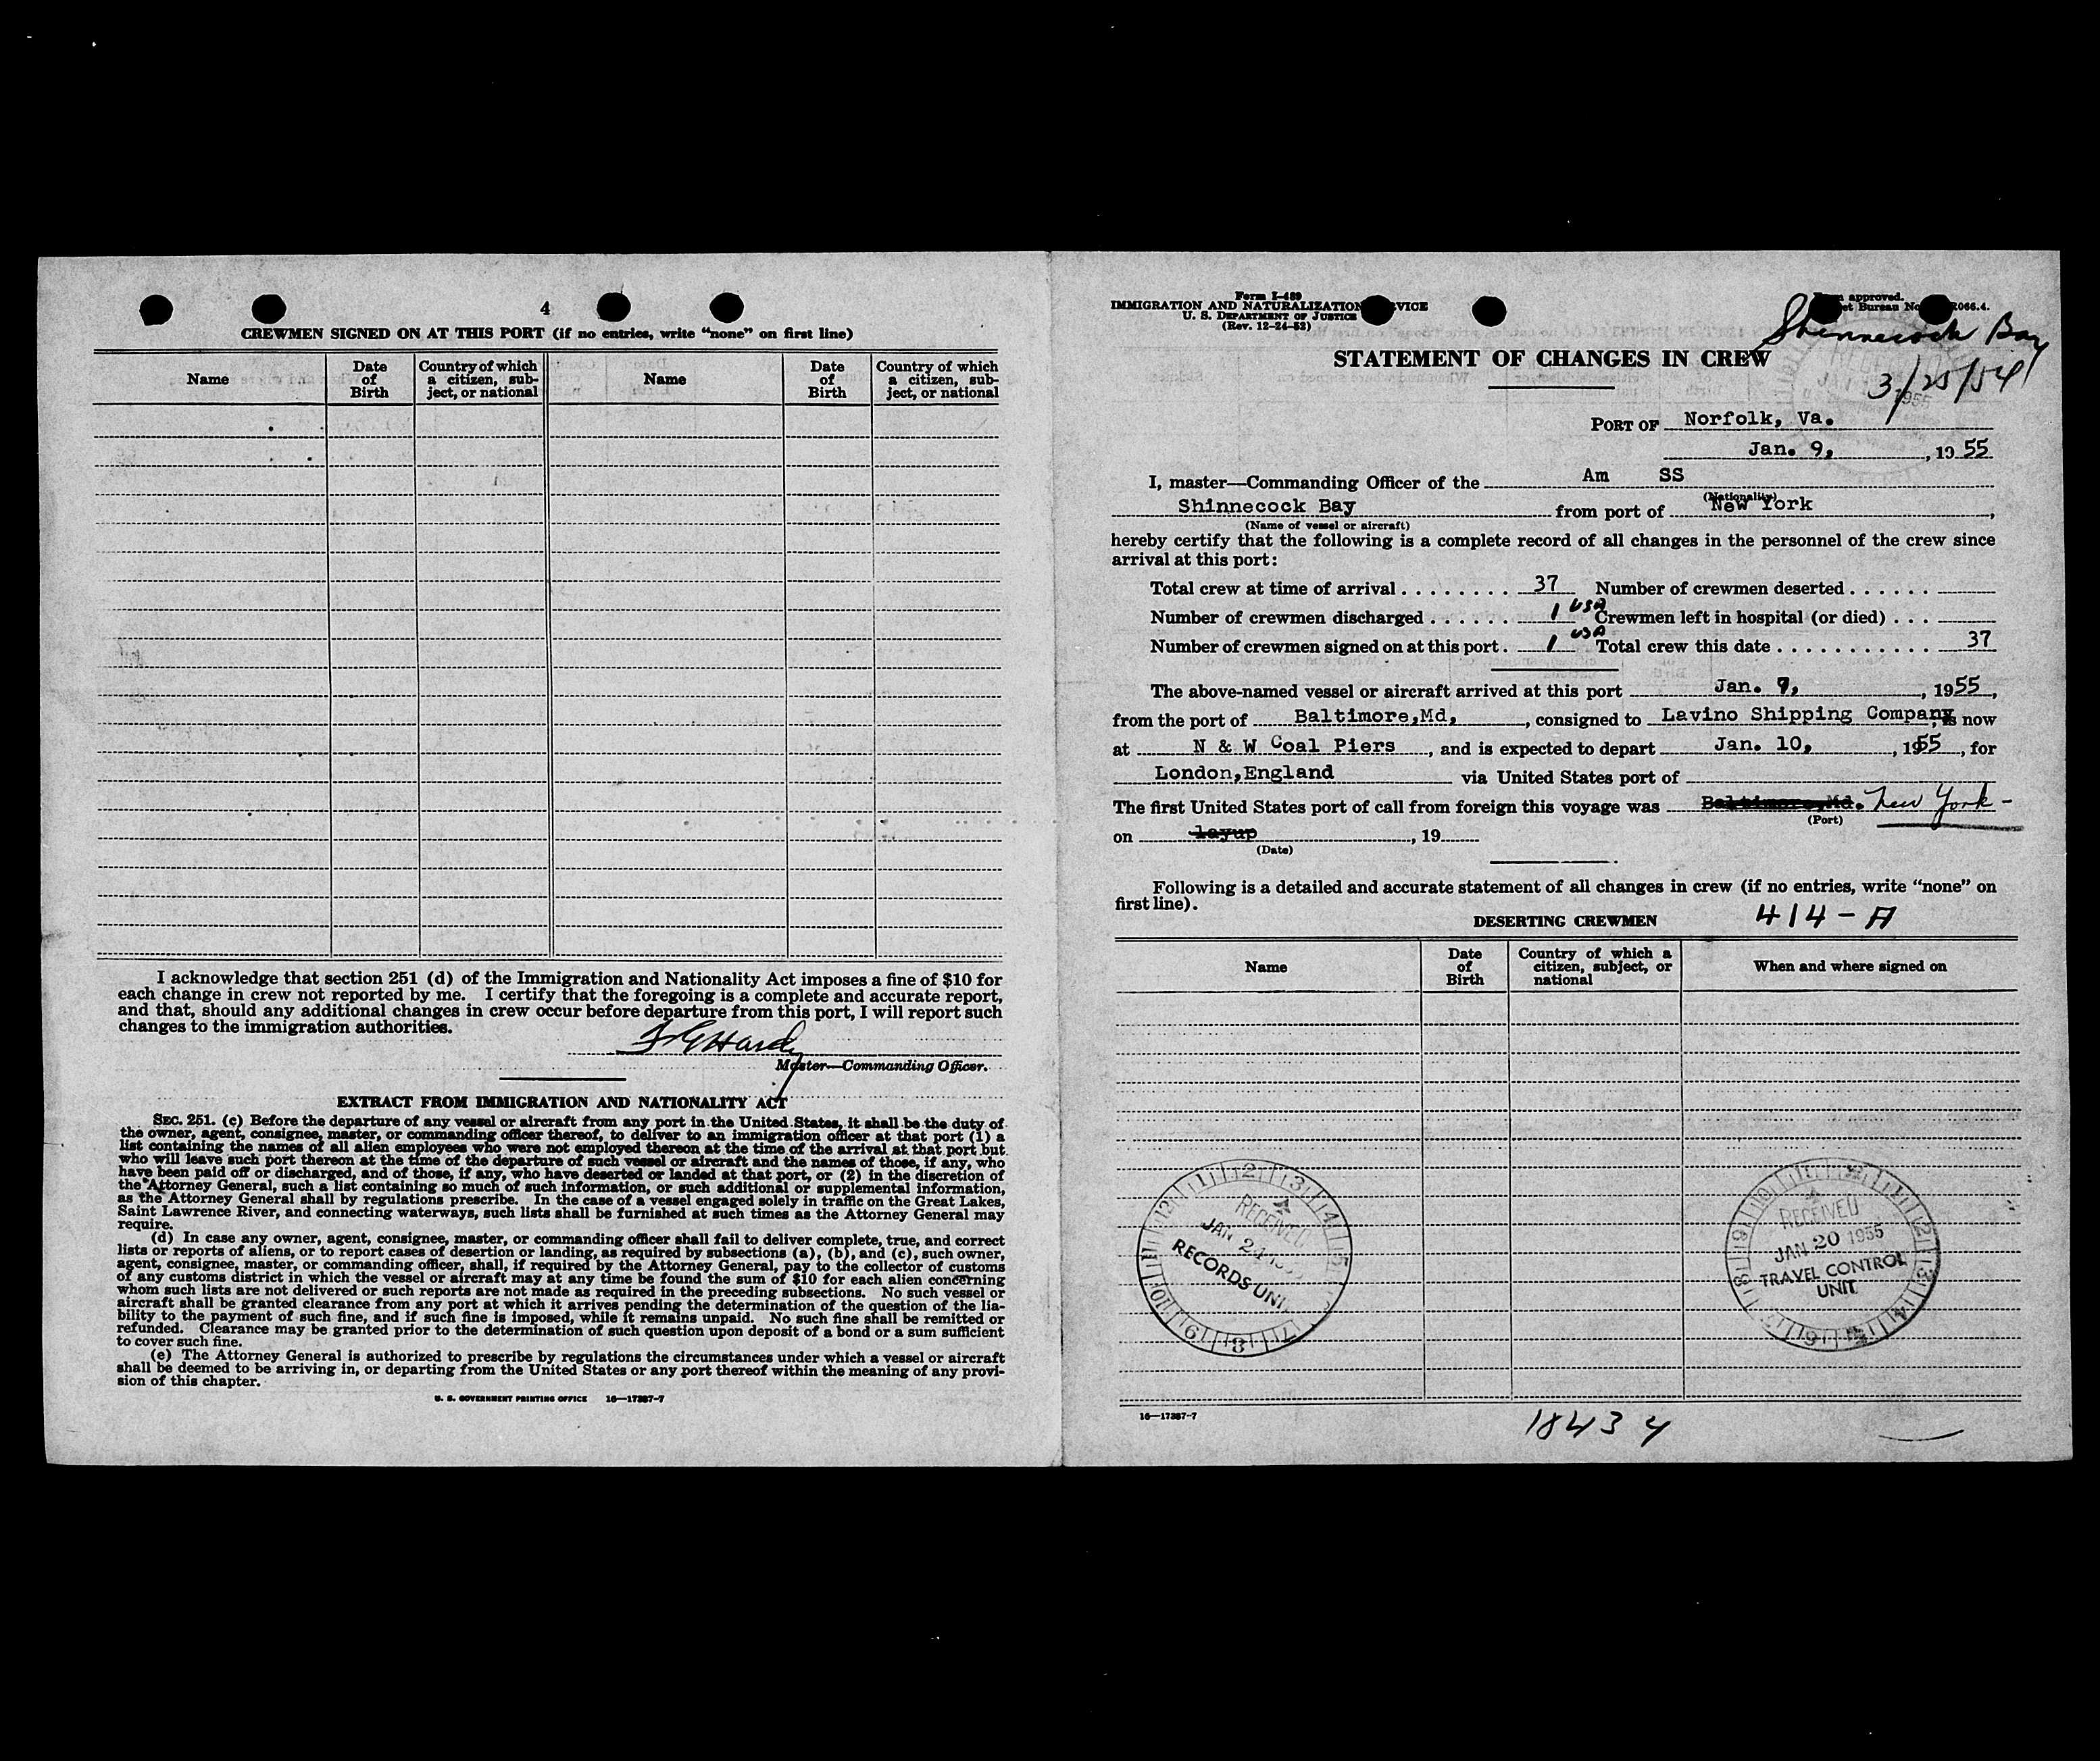 4
CREWMEN SIGNED ON AT THIS PORT (if no entries, write “none” on first line)
Name
Date of Birth
Country of which a citizen, subject, or national
Name
Date of Birth
Country of which a citizen, subject, or national
I acknowledge that section 251 (d) of the Immigration and Nationality Act imposes a fine of $10 for
each change in crew not reported by me. I certify that the foregoing is a complete and accurate report,
and that, should any additional changes in crew occur before departure from this port, I will report such
changes to the immigration authorities.
Hardy
Master—Commanding Officer.
EXTRACT FROM IMMIGRATION AND NATIONALITY ACT
SEC. 251. (c) Before the departure of any vessel or aircraft from any port in the United States, it shall be the duty of
the owner, agent, consignee, master, or commanding officer thereof, to deliver to an immigration officer at that port (1) a
list containing the names of all alien employees who were not employed thereon at the time of the arrival at that port but
who will leave such port thereon at the time of the departure of such vessel or aircraft and the names of those, if any, who
have been paid off or discharged, and of those, if any, who have deserted or landed at that port, or (2) in the discretion of
the Attorney General, such a list containing so much of such information, or such additional or supplemental information,
as the Attorney General shall by regulations prescribe. In the case of a vessel engaged solely in traffic on the Great Lakes,
Saint Lawrence River, and connecting waterways, such lists shall be furnished at such times as the Attorney General may
require.
(d) In case any owner, agent, consignee, master, or commanding officer shall fail to deliver complete, true, and correct
lists or reports of aliens, or to report cases of desertion or landing, as required by subsections (a), (b), and (c), such owner,
agent, consignee, master, or commanding officer, shall, if required by the Attorney General, pay to the collector of customs
of any customs district in which the vessel or aircraft may at any time be found the sum of $10 for each alien concerning
whom such lists are not delivered or such reports are not made as required in the preceding subsections. No such vessel or
aircraft shall be granted clearance from any port at which it arrives pending the determination of the question of the lia-
bility to the payment of such fine, and if such fine is imposed, while it remains unpaid. No such fine shall be remitted or
refunded. Clearance may be granted prior to the determination of such question upon deposit of a bond or a sum sufficient
to cover such fine.
(e) The Attorney General is authorized to prescribe by regulations the circumstances under which a vessel or aircraft
shall be deemed to be arriving in, or departing from the United States or any port thereof within the meaning of any provi-
sion of this chapter.
U. S. GOVERNMENT PRINTING OFFICE 16—17387-7
Form I-489
IMMIGRATION AND NATURALIZATION VICE
U. S. DEPARTMENT OF JUSTICE
(Rev. 12-24-52)
approved.
et Bureau No. R066.4.
Shinnecock Bay
3/25/54
STATEMENT OF CHANGES IN CREW
PORT OF Norfolk, Va.
Jan. 9, , 19 55
I, master—Commanding Officer of the Am SS
(Nationality)
Shinnecock Bay from port of New York ,
(Name of vessel or aircraft)
hereby certify that the following is a complete record of all changes in the personnel of the crew since
arrival at this port:
Total crew at time of arrival . . . . . . . . 37 Number of crewmen deserted . . . . . .
Number of crewmen discharged . . . . . . 1 USA Crewmen left in hospital (or died) . . .
Number of crewmen signed on at this port . 1 USA Total crew this date . . . . . . . . . . . 37
The above-named vessel or aircraft arrived at this port Jan. 9, , 1955 ,
from the port of Baltimore,Md, , consigned to Lavino Shipping Company, is now
at N & W Coal Piers , and is expected to depart Jan. 10, , 1955 , for
London,England via United States port of
The first United States port of call from foreign this voyage was Baltimore,Md. New York -
(Port)
on layup , 19
(Date)
Following is a detailed and accurate statement of all changes in crew (if no entries, write “none” on
first line).
DESERTING CREWMEN 414-A
Name
Date of Birth
Country of which a citizen, subject, or national
When and where signed on
RECEIVED
JAN 24
RECORDS UNI
RECEIVED
JAN 20 1955
TRAVEL CONTROL
UNIT
16—17387-7
18434